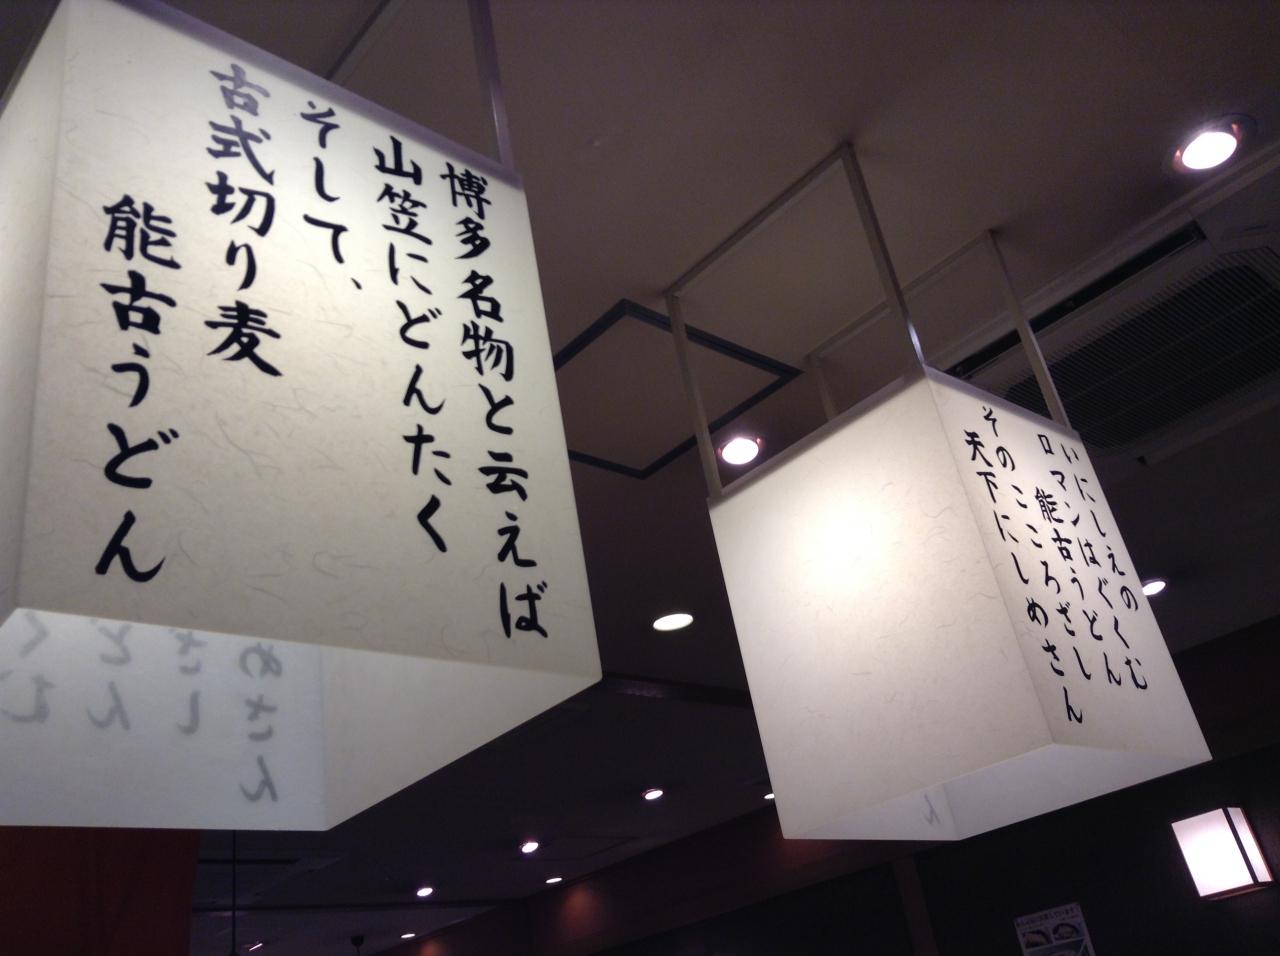 博多名物と云えば
山笠にどんたく
そして、
古式切り麦
能古うどん
いにしえのくむ
ロマンはぐくん
能古うどん
そのこころざし
天下にしめさん
めさん
さし
どん
くむ
ん